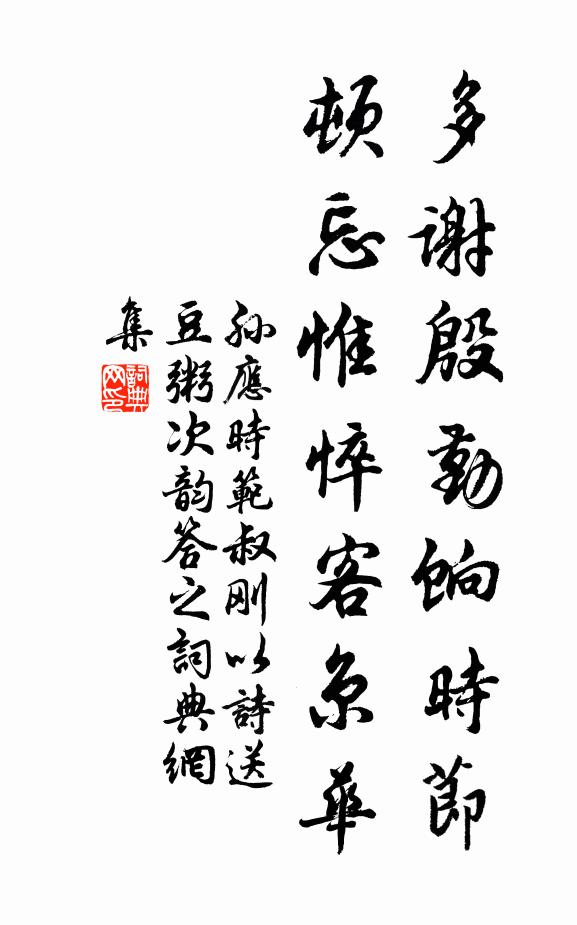 多謝殷勤餉時節
頓忘惟悴客京華
孫應時範叔剛以詩送
豆粥次韵答之詞典網
集
詞典网印